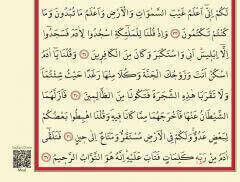 لَكُمْ إِنِّي أَعْلَمُ غَيْبَ السَّمَاوَاتِ وَالْأَرْضِ وَأَعْلَمُ مَا تُبْدُونَ وَمَا
كُنْتُمْ تَكْتُمُونَ ﴿٣٣﴾ وَإِذْ قُلْنَا لِلْمَلَائِكَةِ اسْجُدُوا لِآدَمَ فَسَجَدُوا
إِلَّا إِبْلِيسَ أَبَى وَاسْتَكْبَرَ وَكَانَ مِنَ الْكَافِرِينَ ﴿٣٤﴾ وَقُلْنَا يَا آدَمُ
اسْكُنْ أَنْتَ وَزَوْجُكَ الْجَنَّةَ وَكُلَا مِنْهَا رَغَدًا حَيْثُ شِئْتُمَا
وَلَا تَقْرَبَا هَذِهِ الشَّجَرَةَ فَتَكُونَا مِنَ الظَّالِمِينَ ﴿٣٥﴾ فَأَزَلَّهُمَا
الشَّيْطَانُ عَنْهَا فَأَخْرَجَهُمَا مِمَّا كَانَا فِيهِ وَقُلْنَا اهْبِطُوا بَعْضُكُمْ
لِبَعْضٍ عَدُوٌّ وَلَكُمْ فِي الْأَرْضِ مُسْتَقَرٌّ وَمَتَاعٌ إِلَى حِينٍ ﴿٣٦﴾ فَتَلَقَّى
آدَمُ مِنْ رَبِّهِ كَلِمَاتٍ فَتَابَ عَلَيْهِ إِنَّهُ هُوَ التَّوَّابُ الرَّحِيمُ ﴿٣٧﴾